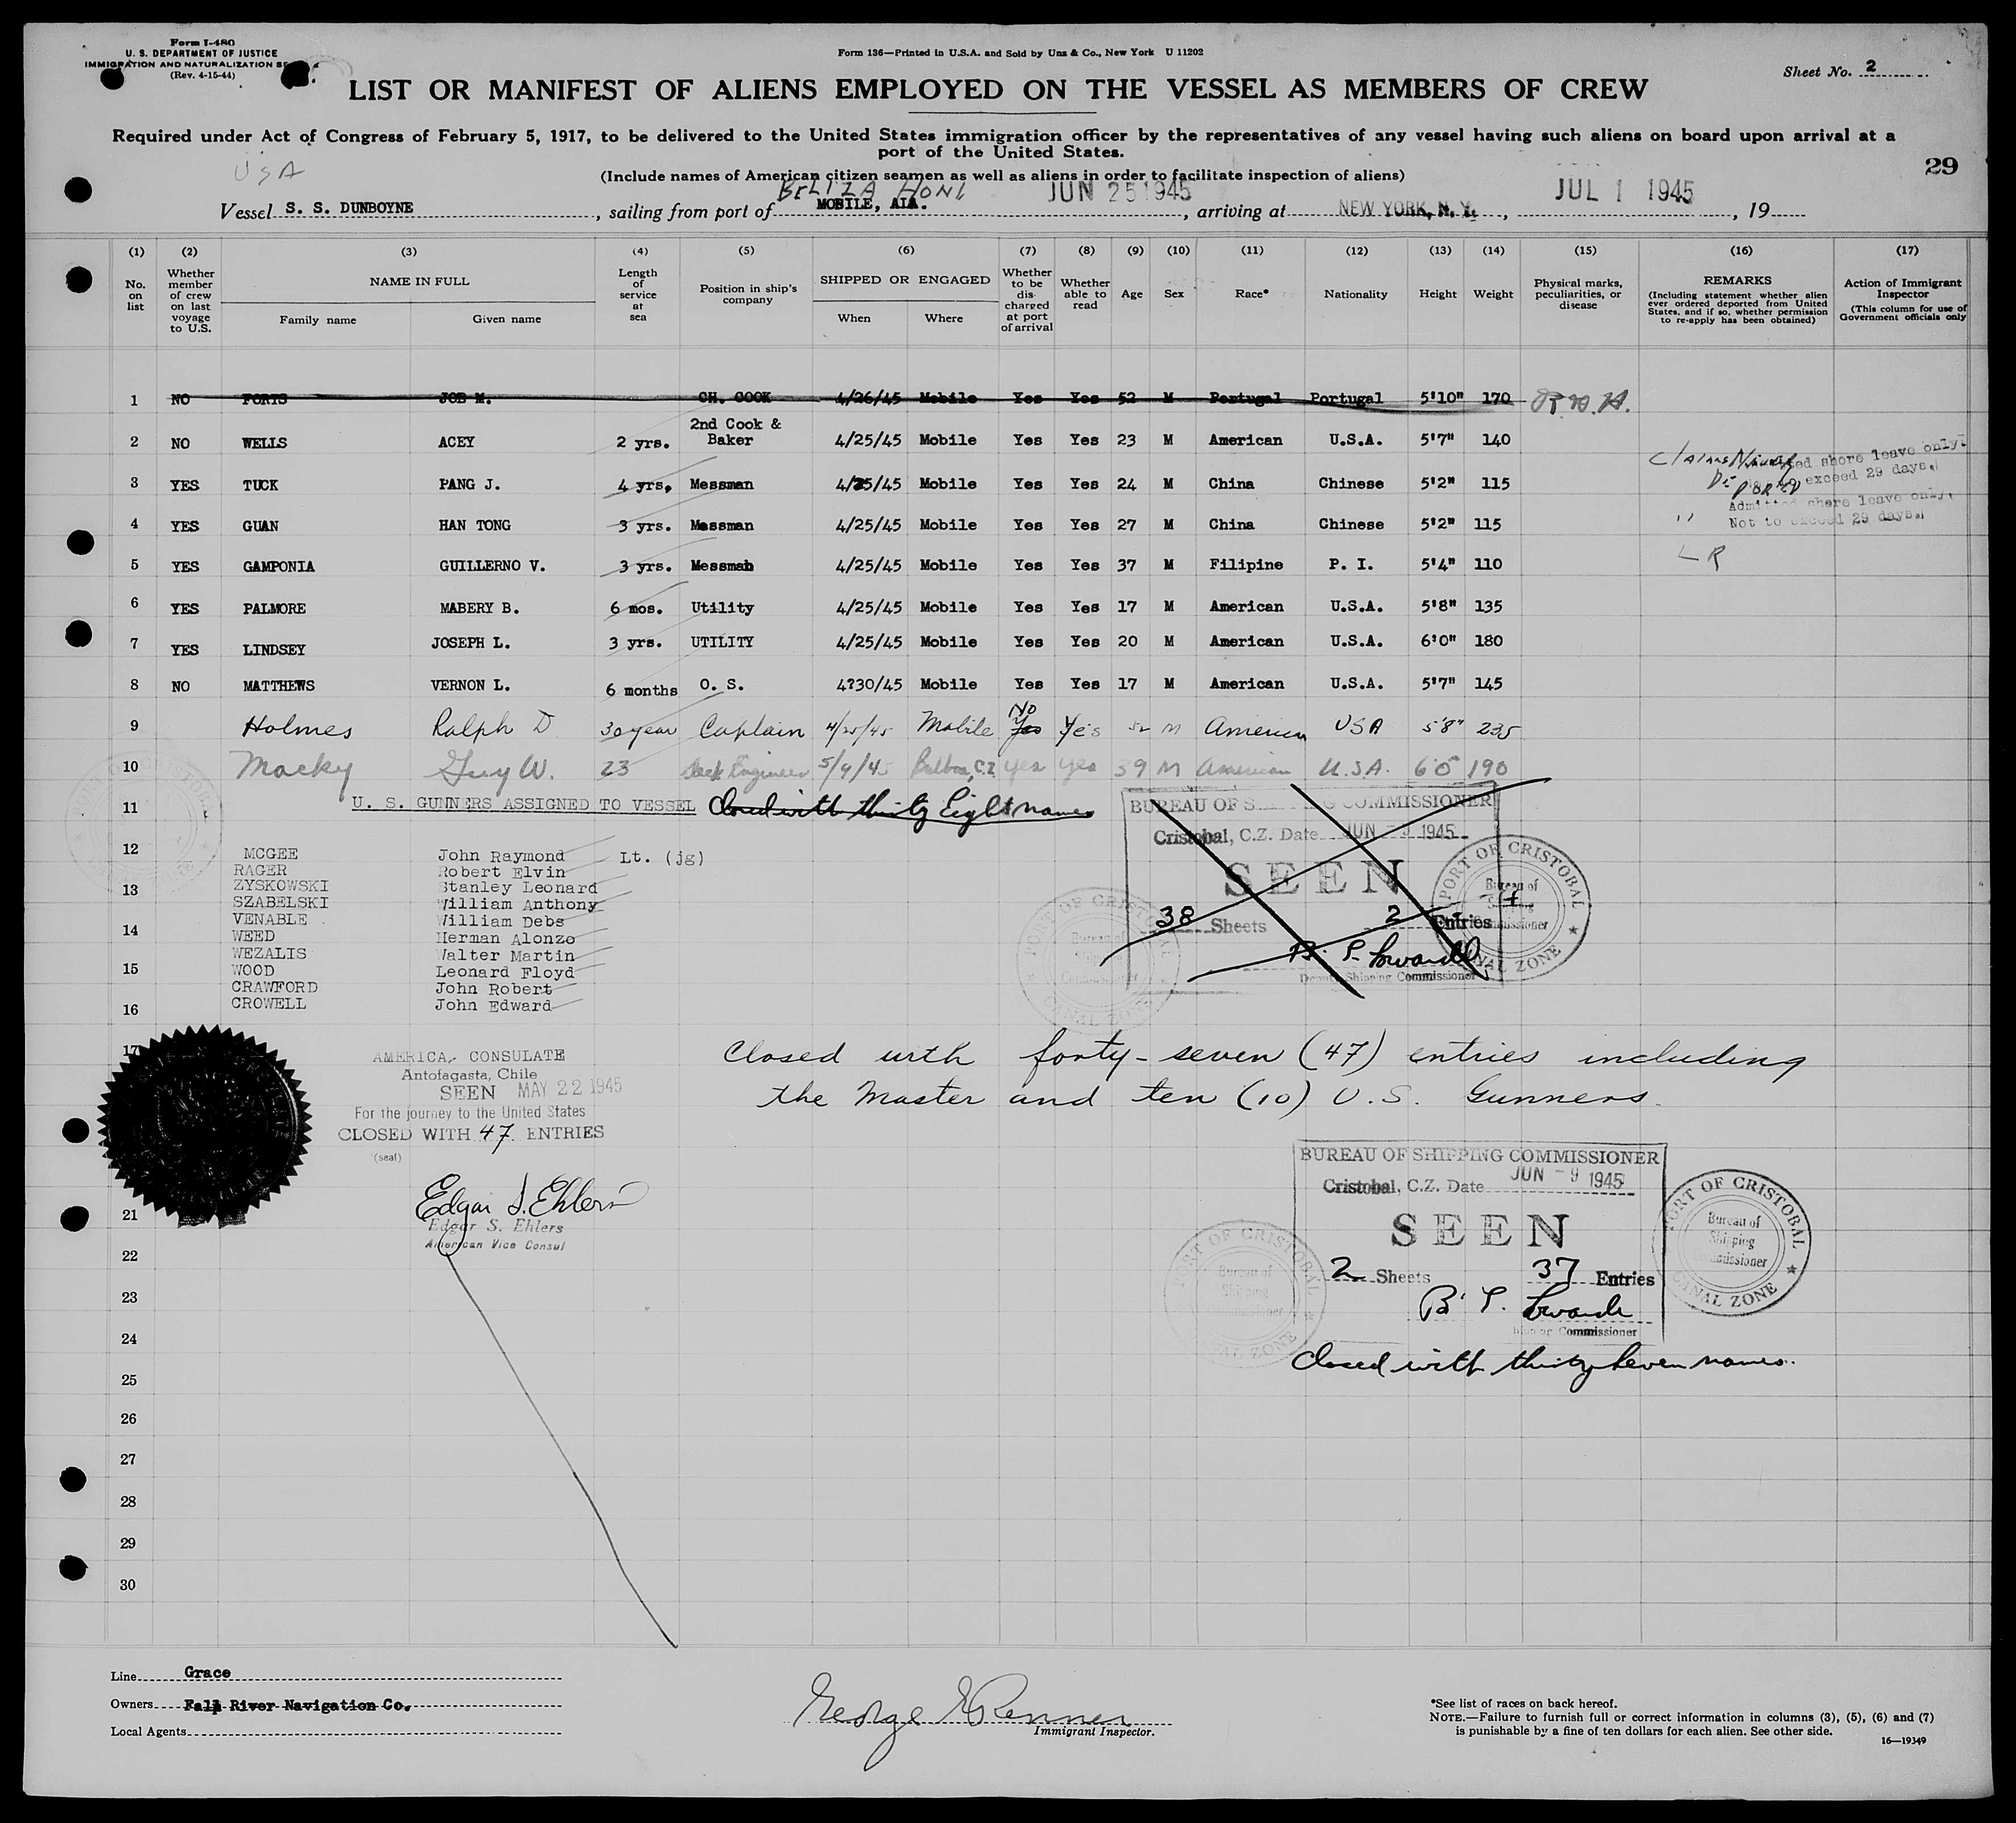 Form I-480
U. S. DEPARTMENT OF JUSTICE
IMMIGRATION AND NATURALIZATION
(Rev. 4-15-44)
Form 136—Printed in U.S.A. and Sold by Unz & Co., New York U 11202
Sheet No. 2
LIST OR MANIFEST OF ALIENS EMPLOYED ON THE VESSEL AS MEMBERS OF CREW
Required under Act of Congress of February 5, 1917, to be delivered to the United States immigration officer by the representatives of any vessel having such aliens on board upon arrival at a
port of the United States.
USA
(Include names of American citizen seamen as well as aliens in order to facilitate inspection of aliens)
29
BELIZA HOND JUN 25 1945 JUL 1 1945
Vessel S. S. DUNBOYNE, sailing from port of MOBILE, AIA., arriving at NEW YORK, N. Y., , 19
(1) (2) (3) (4) (5) (6) (7) (8) (9) (10) (11) (12) (13) (14) (15) (16) (17)
No. on list
Whether member of crew on last voyage to U.S.
NAME IN FULL
Family name Given name
Length of service at sea
Position in ship's company
SHIPPED OR ENGAGED
When Where
Whether to be discharged at port of arrival
Whether able to read
Age
Sex
Race*
Nationality
Height
Weight
Physical marks, peculiarities, or disease
REMARKS
(Including statement whether alien ever ordered deported from United States, and if so, whether permission to re-apply has been obtained)
Action of Immigrant Inspector
(This column for use of Government officials only
1 NO FORTS JOE M. CH. COOK 4/26/45 Mobile Yes Yes 52 M Portugal Portugal 5'10" 170
2 NO WELLS ACEY 2 yrs. 2nd Cook & Baker 4/25/45 Mobile Yes Yes 23 M American U.S.A. 5'7" 140
3 YES TUCK PANG J. 4 yrs. Messman 4/25/45 Mobile Yes Yes 24 M China Chinese 5'2" 115 shore leave only. exceed 29 days.
4 YES GUAN HAN TONG 3 yrs. Messman 4/25/45 Mobile Yes Yes 27 M China Chinese 5'2" 115 " Admitted shore leave only. Not to exceed 29 days.
5 YES GAMPONIA GUILLERNO V. 3 yrs. Messman 4/25/45 Mobile Yes Yes 37 M Filipine P. I. 5'4" 110 LR
6 YES PALMORE MABERY B. 6 mos. Utility 4/25/45 Mobile Yes Yes 17 M American U.S.A. 5'8" 135
7 YES LINDSEY JOSEPH L. 3 yrs. UTILITY 4/25/45 Mobile Yes Yes 20 M American U.S.A. 6'0" 180
8 NO MATTHEWS VERNON L. 6 months O. S. 4?30/45 Mobile Yes Yes 17 M American U.S.A. 5'7" 145
9 Holmes Ralph D 30 year Captain 4/25/45 Mobile Yes No Yes 52 M American USA 5'8" 235
10 Macky Guy W. 23 Deck Engineer 5/9/45 Balboa, C.Z. yes yes 39 M American U.S.A. 6 0 190
11 U. S. GUNNERS ASSIGNED TO VESSEL Closed with thirty Eight names
12
13
14
15
16
MCGEE John Raymond Lt. (jg)
RAGER Robert Elvin
ZYSKOWSKI Stanley Leonard
SZABELSKI William Anthony
VENABLE William Debs
WEED Herman Alonzo
WEZALIS Walter Martin
WOOD Leonard Floyd
CRAWFORD John Robert
CROWELL John Edward
BUREAU OF SHIPPING COMMISSIONER
Cristobal, C.Z. Date JUN - 9 1945
SEEN
38 Sheets 2 Entries
Deputy Shipping Commissioner
PORT OF CRISTOBAL
Bureau of Shipping Commissioner
CANAL ZONE
17
AMERICAN CONSULATE
Antofagasta, Chile
SEEN MAY 22 1945
For the journey to the United States
CLOSED WITH 47 ENTRIES
(seal)
Edgar S. Ehlers
Edgar S. Ehlers
American Vice Consul
Closed with forty-seven (47) entries including
the Master and ten (10) U.S. Gunners.
BUREAU OF SHIPPING COMMISSIONER
Cristobal, C.Z. Date JUN - 9 1945
SEEN
2 Sheets 37 Entries
Shipping Commissioner
PORT OF CRISTOBAL
Bureau of Shipping Commissioner
CANAL ZONE
Closed with thirty seven names.
21
22
23
24
25
26
27
28
29
30
Line Grace
Owners Fall River Navigation Co.
Local Agents
Immigrant Inspector.
*See list of races on back hereof.
NOTE.—Failure to furnish full or correct information in columns (3), (5), (6) and (7)
is punishable by a fine of ten dollars for each alien. See other side.
16—19349